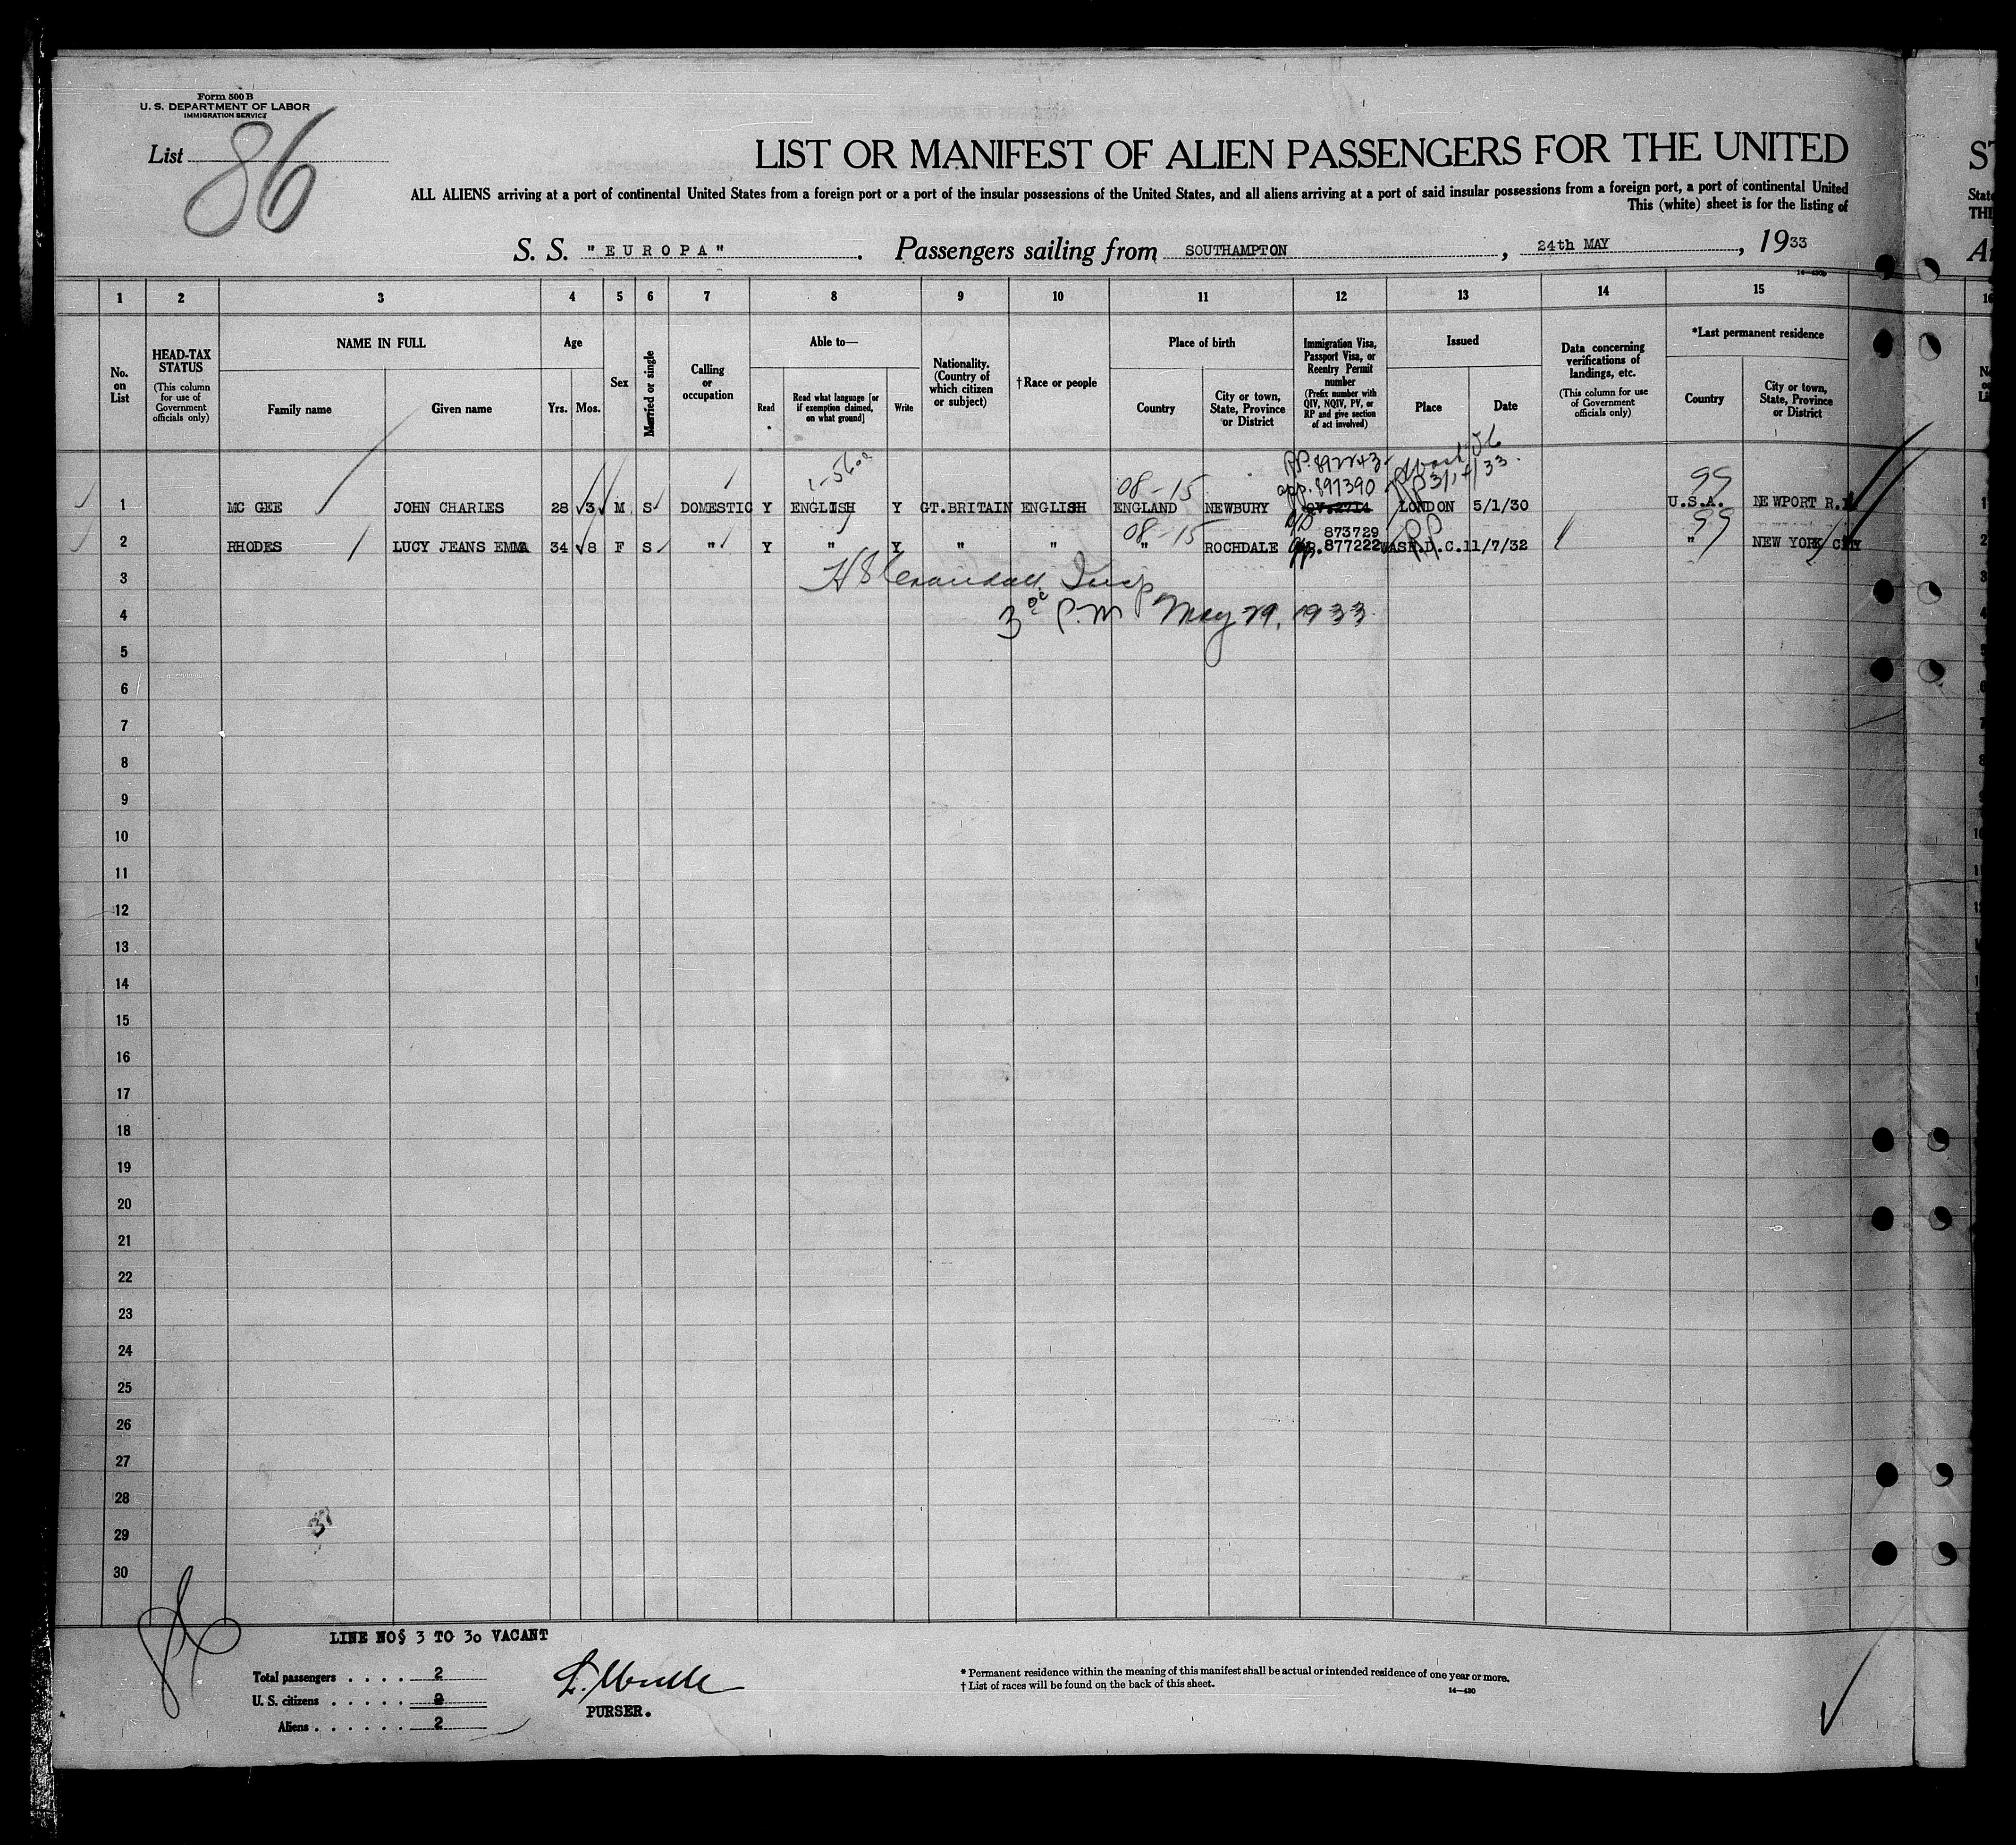 Form 500 B
U. S. DEPARTMENT OF LABOR
IMMIGRATION SERVICE
List 86
LIST OR MANIFEST OF ALIEN PASSENGERS FOR THE UNITED
ALL ALIENS arriving at a port of continental United States from a foreign port or a port of the insular possessions of the United States, and all aliens arriving at a port of said insular possessions from a foreign port, a port of continental United
This (white) sheet is for the listing of
S. S. "EUROPA". Passengers sailing from SOUTHAMPTON, 24th MAY, 1933
14—430b
1 2 3 4 5 6 7 8 9 10 11 12 13 14 15
No. on List
HEAD-TAX STATUS (This column for use of Government officials only)
NAME IN FULL
Family name Given name
Age
Yrs. Mos.
Sex
Married or single
Calling or occupation
Able to—
Read Read what language [or if exemption claimed, on what ground] Write
Nationality. (Country of which citizen or subject)
† Race or people
Place of birth
Country City or town, State, Province or District
Immigration Visa, Passport Visa, or Reentry Permit number (Prefix number with QIV, NQIV, PV, or RP and give section of act involved)
Issued
Place Date
Data concerning verifications of landings, etc. (This column for use of Government officials only)
*Last permanent residence
Country City or town, State, Province or District
app. 897390
08-15 99
1 MC GEE JOHN CHARLES 28 3 M S DOMESTIC Y ENGLISH Y GT.BRITAIN ENGLISH ENGLAND NEWBURY LONDON 5/1/30 U.S.A. NEWPORT R.I
08-15 873729 RP 99
2 RHODES LUCY JEANS EMMA 34 8 F S " Y " Y " " " ROCHDALE 877222 WASH.D.C. 11/7/32 " NEW YORK CITY
3 H S Crandall Insp
4 3 00 P.M May 29, 1933
5
6
7
8
9
10
11
12
13
14
15
16
17
18
19
20
21
22
23
24
25
26
27
28
29
30
LINE NOS 3 TO 30 VACANT
Total passengers . . . . 2
U. S. citizens . . . . .
Aliens . . . . . . 2
PURSER.
* Permanent residence within the meaning of this manifest shall be actual or intended residence of one year or more.
† List of races will be found on the back of this sheet.
14—430